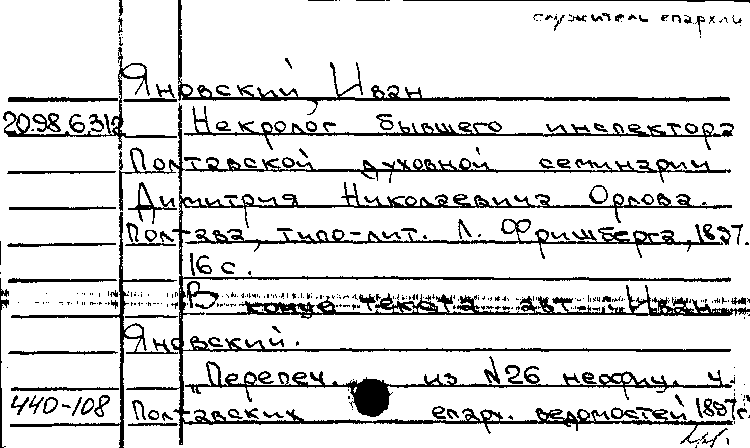 служитель епархии
Яновский, Иван
2098.6312 Некролог бывшего инспектора
Полтавской духовной семинарии
Димитрия Николаевича Орлова.
Полтава, типо-лит. Л. Фришберга, 1897.
16 с.
В конце текста авт.: Иван
Яновский.
"Перепеч. из №26 неофиц. ч.
440-108 Полтавских епарх. ведомостей 1897г.